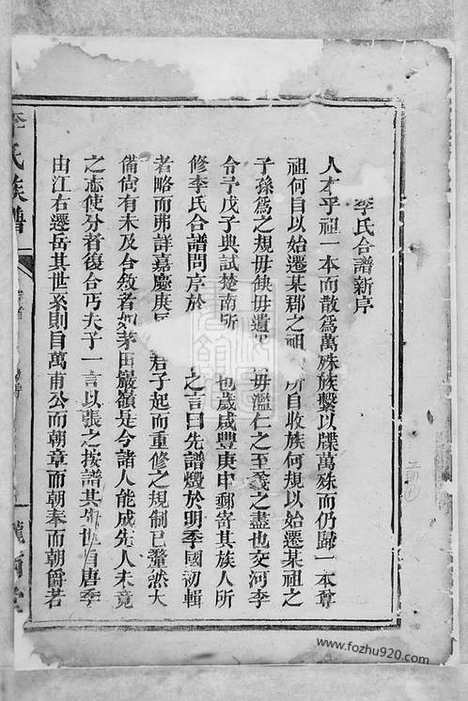 李氏合譜新序
人才乎祖一本而散爲萬殊族繫以牒萬殊而仍歸一本尊
祖何自以始遷某郡之祖 所自收族何規以始遷某祖之
子孫爲之規毋缺毋遺 毋濫仁之至義之盡也交河李
令予戊子典試楚南所 也歲咸豐庚申郵寄其族人所
修李氏合譜問序於 之言曰先譜燬於明季國初輯
者略而弗詳嘉慶庚 君子起而重修之規制已釐然大
備尚有未及合敘者如茅田巖嶺是今諸人能成先人未竟
之志使分者復合丐夫子一言以張之按譜其 自唐季
由江右遷岳其世系則自萬甫公而朝章而朝奉而朝爵若
李氏族譜
www.fozhu920.com